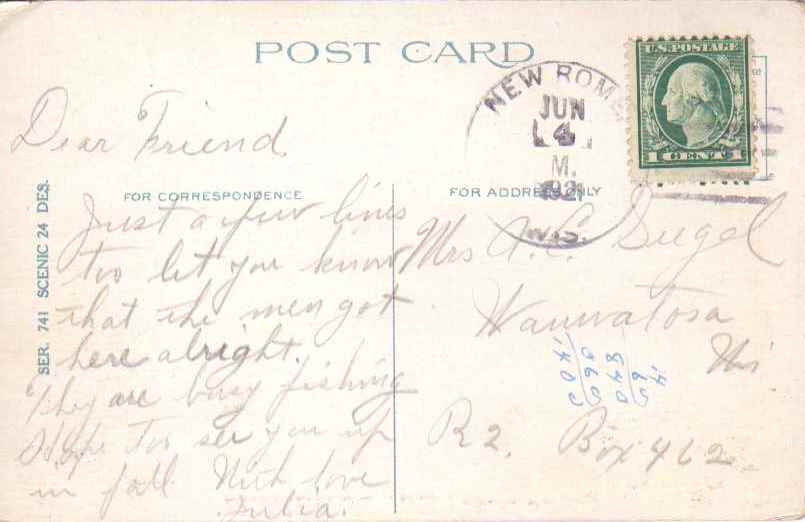 POST CARD
U.S. POSTAGE
1 CENT 1
NEW ROME
JUN
4
M.
1921
WIS.
Dear Friend
FOR CORRESPONDENCE
FOR ADDRESS ONLY
SER. 741 SCENIC 24 DES.
Just a few lines
too let you know
that the men got
here alright.
They are busy fishing
Hope Too see you up
in fall With love
Julia.
Mrs A.C. Siegel
Wauwatosa
Wis
R2. Box 462
14